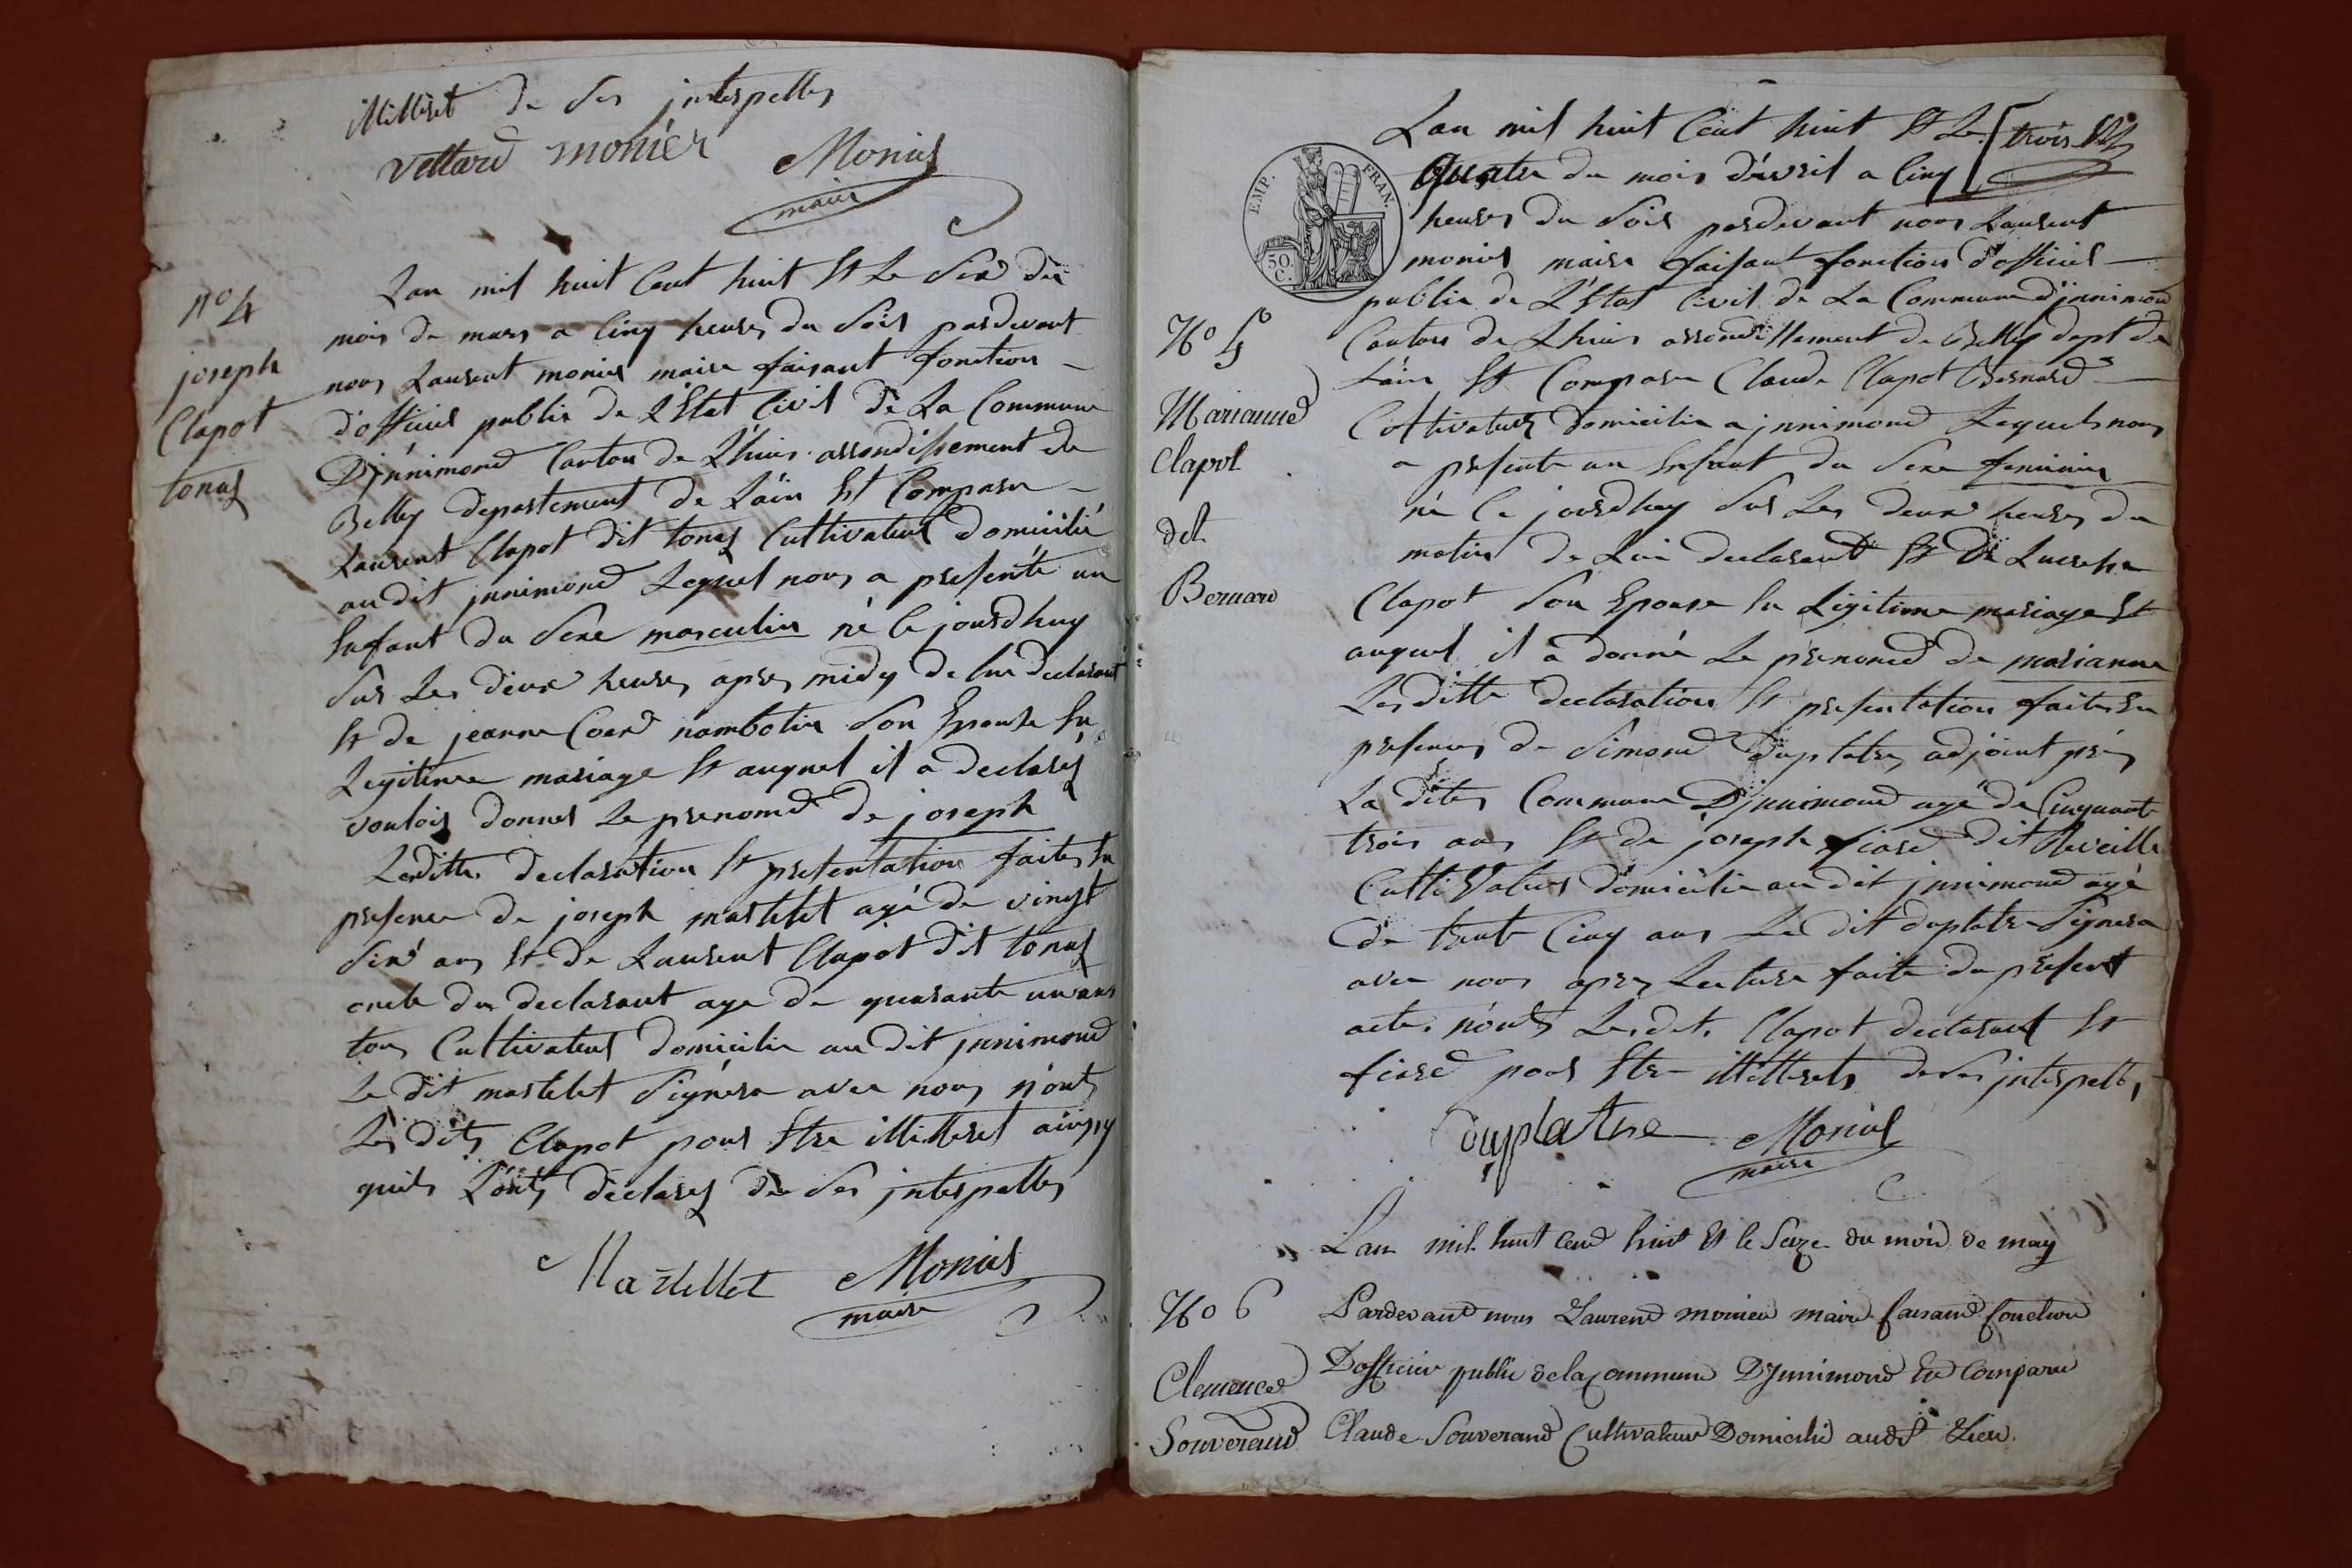 illittéret de ses interpellés
Vettard monier Monier
maire
N° 4
joseph
Clapot
tonuz
Lan mil huit Cent huit Et Le Six du
mois de mars a Cinq heures du Soir pardevant
nous Laurent monier maire faisant fonction
d'officier public de L'Etat Civil de La Commune
D'jnnimond Canton de Lhuis arrondissement de
Belley département de L'ain Est Comparu
Laurent Clapot dit tonuz Cultivateur domicilié
au dit jnnimond Lequel nous a présenté un
Enfant du Sexe masculin né Ce jourdhuy
Sur Les deux heures apres midy de lui declarant
Et de jeanne Coer nambotin Son Epouse En
Legitime mariage Et auquel il a declarez
vouloir donner Le prenomd de joseph
Lesditte declaration Et presentation faites En
presence de joseph martelet agé de vingt
Six ans Et de Laurent Clapot dit tonuz
oncle du declarant age de quarante un ans
tous Cultivateur domicilie au dit jnnimond
Le dit martelet Signera avec nous n'ont
Les dits Clapot pour Etre illitteret ainsy
quils L'ont declarez de Ses interpellés
Martellet Monier
maire
Lan mil huit Cent huit Et Le trois
EMP. FRAN.
50 C.
Quatre du mois d'avril a Cinq
heures du Soir pardevant nous Laurent
monier maire faisant fonction d'officier
public de L'Etat Civil de La Commune d'jnnimond
N° 5
Canton de Lhuis arrondissement de Belley dept de
L'ain Est Comparu Claude Clapot Bernard
Marianne
Clapot
dit
Bernard
Cultivateur domicilie a jnnimond Lequel nous
a presente un Enfant du Sexe feminin
né Ce jourdhuy Sur Les deux heures du
matin de Lui declarant Et De Lucrese
Clapot Son Epouse En Legitime mariage Et
auquel il a donné Le prenomd de marianne
Les ditte declaration Et presentation faites En
presences de Simond duplatre adjoint prés
La dite Commune D'jnnimond agé de Cinquante
trois ans Et de joseph ficard dit Reveille
Cultivateur domicilie au dit jnnimond agé
de trente Cinq ans Le dit duplatre Signera
avec nous apres Lecture faite du present
acte n'ont Les dit. Clapot declarant Et
ficard pour Etre illitterets de Ses interpellés
duplatre Monier
maire
L'an mil huit cend huit Et le Seize du mois de may
N° 6
Clemence
Souverand
Pardevant nous Laurend monier maire faisand fonction
D'officier public de la commune D'Jnnimond Est Comparu
Claude Souverand Cultivateur Domicilié audit Lieu.